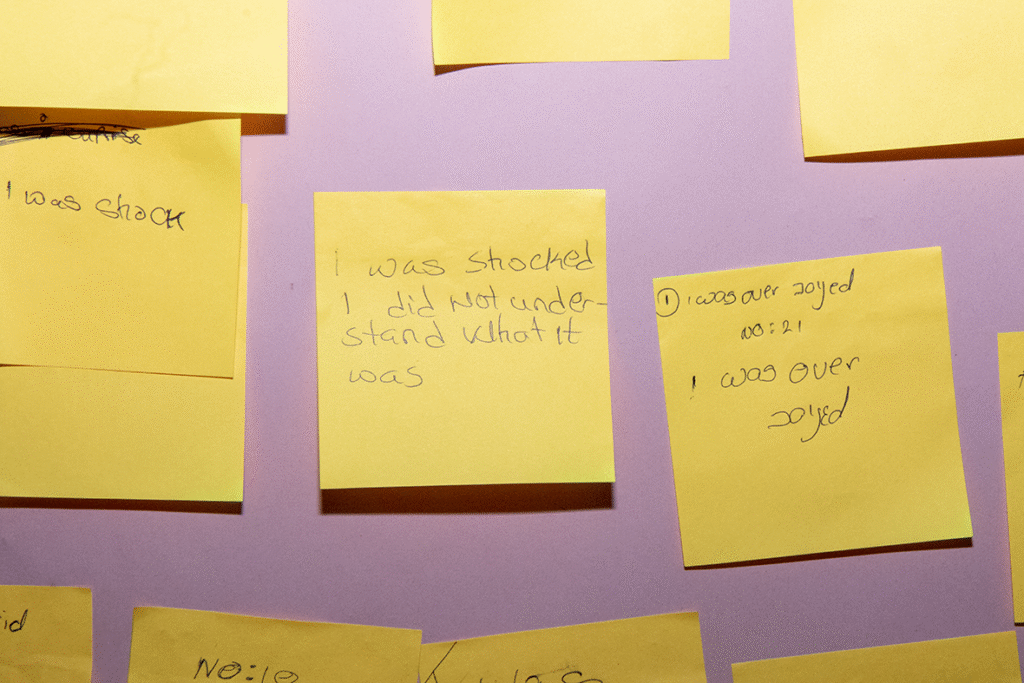 I was shock
I was shocked
I did Not under-
stand What it
was
① I was over joyed
NO: 21
I was over
joyed
id
NO: 10
was